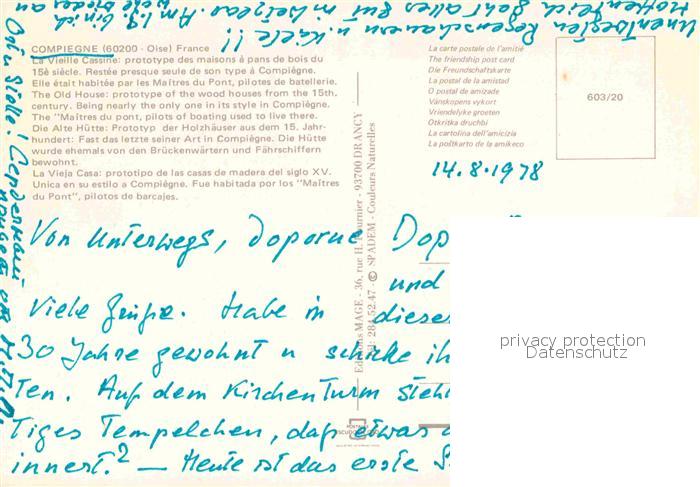 COMPIEGNE (60200 - Oise) France
La Vieille Cassine: prototype des maisons à pans de bois du
15è siècle. Restée presque seule de son type à Compiègne.
Elle était habitée par les Maîtres du Pont, pilotes de batellerie.
The Old House: prototype of the wood houses from the 15th.
century. Being nearly the only one in its style in Compiègne.
The "Maîtres du pont, pilots of boating used to live there.
Die Alte Hütte: Prototyp der Holzhäuser aus dem 15. Jahr-
hundert: Fast das letzte seiner Art in Compiègne. Die Hütte
wurde ehemals von den Brückenwärtern und Fährschiffern
bewohnt.
La Vieja Casa: prototipo de las casas de madera del siglo XV.
Unica en su estilo a Compiègne. Fue habitada por los "Maîtres
du Pont", pilotos de barcajes.
Editions MAGE - 36, rue H. Fournier - 93700 DRANCY
Tél: 284-52-47 - © SPADEM - Couleurs Naturelles
La carte postale de l'amitié
The friendship post card
Die Freundschaftskarte
La postal de la amistad
O postal de amizade
Vänskapens vykort
Vriendelyke groeten
Otkritka druchbi
La cartolina dell'amicizia
La poŝtkarto de la amikeco
603/20
14.8.1978
Von Unterwegs,
und
Viele Grüße. Habe in dieser
30 Jahre gewohnt u schicke ih
Ten. Auf dem Kirchenturm steht
Tiges Tempelchen, daß etwas
innert.² — Heute ist das erste
privacy protection
Datenschutz